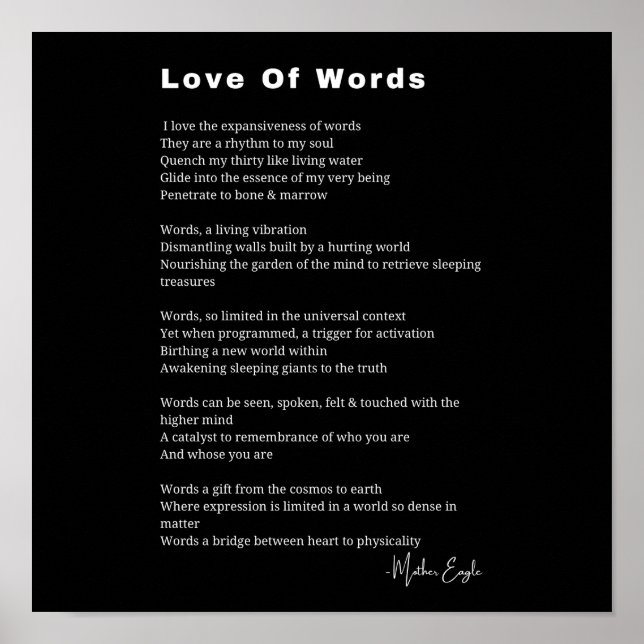 Love Of Words
I love the expansiveness of words
They are a rhythm to my soul
Quench my thirty like living water
Glide into the essence of my very being
Penetrate to bone & marrow
Words, a living vibration
Dismantling walls built by a hurting world
Nourishing the garden of the mind to retrieve sleeping
treasures
Words, so limited in the universal context
Yet when programmed, a trigger for activation
Birthing a new world within
Awakening sleeping giants to the truth
Words can be seen, spoken, felt & touched with the
higher mind
A catalyst to remembrance of who you are
And whose you are
Words a gift from the cosmos to earth
Where expression is limited in a world so dense in
matter
Words a bridge between heart to physicality
-Mother Eagle